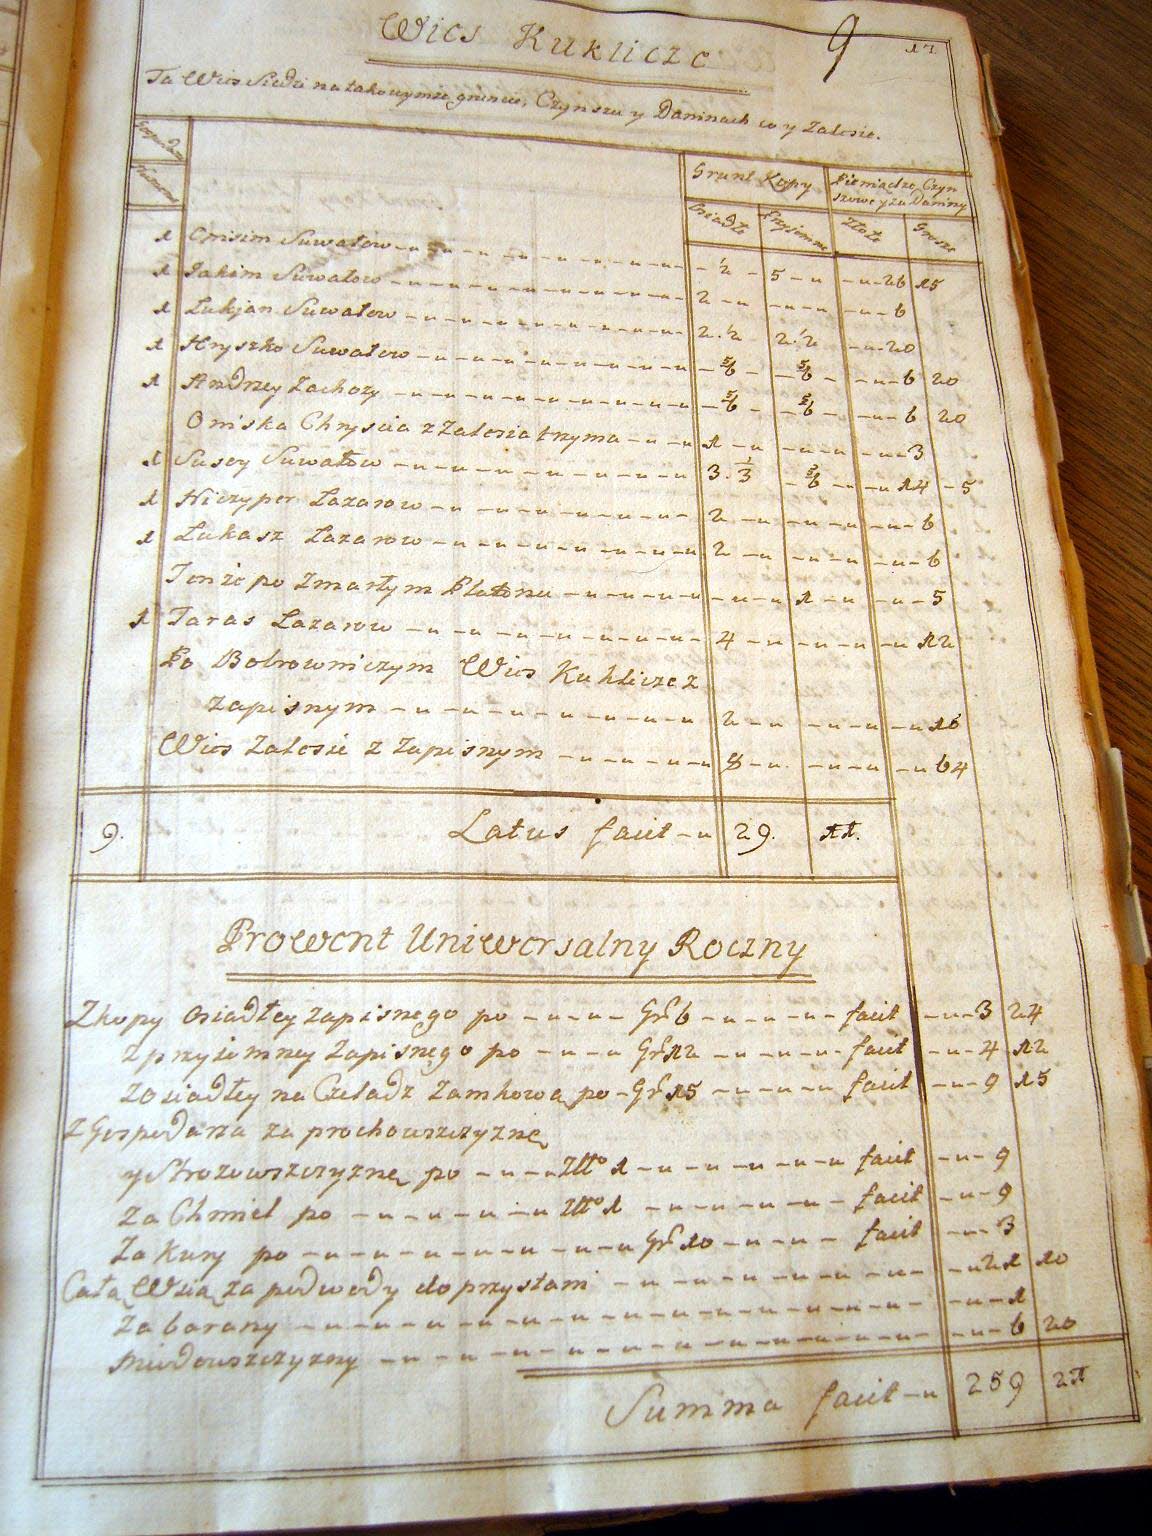 Wies Kuklicze 9 17
Ta Wies Siedzi na takowymże gruncie, Czynszu y Daninach co y Zalesie.
Grunt Kopy Pieniądze Czyn
szowe y za Daniny
Osiadłe Przyiemne Złote Grosze
1 Onisim Suwałow - ½ - 5 - 26 15
1 Jakim Suwałow 2 - 6
1 Łukjan Suwałow 2.½ 2.½ - 20
1 Hryszko Suwałow 5/6 5/6 - 6 20
1 Andrzey Zachozy 5/6 5/6 - 6 20
Oniska Chryscia z Zalesia trzyma 1 - 3
1 Susey Suwałow 3.⅓ 5/6 - 14 - 5
1 Niczyper Łazarow 2 - 6
1 Łukasz Łazarow 2 - 6
Tenże po Zmarłym Płatonu - 1 - 5
1 Taras Łazarow 4 - 12
Po Bobrowniczym Wies Kuklicze z
zapisnym 2 - 16
Wies Zalesie z Zapisnym 8 - 64
9. Latus facit 29. 11.
Prowent Uniwersalny Roczny
Z kopy Osiadłey zapisnego po Gr 6 facit 3 24
z przyiemney Zapisnego po Gr 12 facit 4 12
z Osiadłey na Czeladz Zamkową po Gr 15 facit 9 15
Z Gospodarza za prochowszczyznę
y Strozowszczyznę po Złło 1 facit 9
za Chmiel po Złło 1 facit 9
Za Kury po Gr 10 facit 3
Całą Wsią za podwody do przystani 21 10
Za barany 1
Miodowszczyzny 6 20
Summa facit 259 21